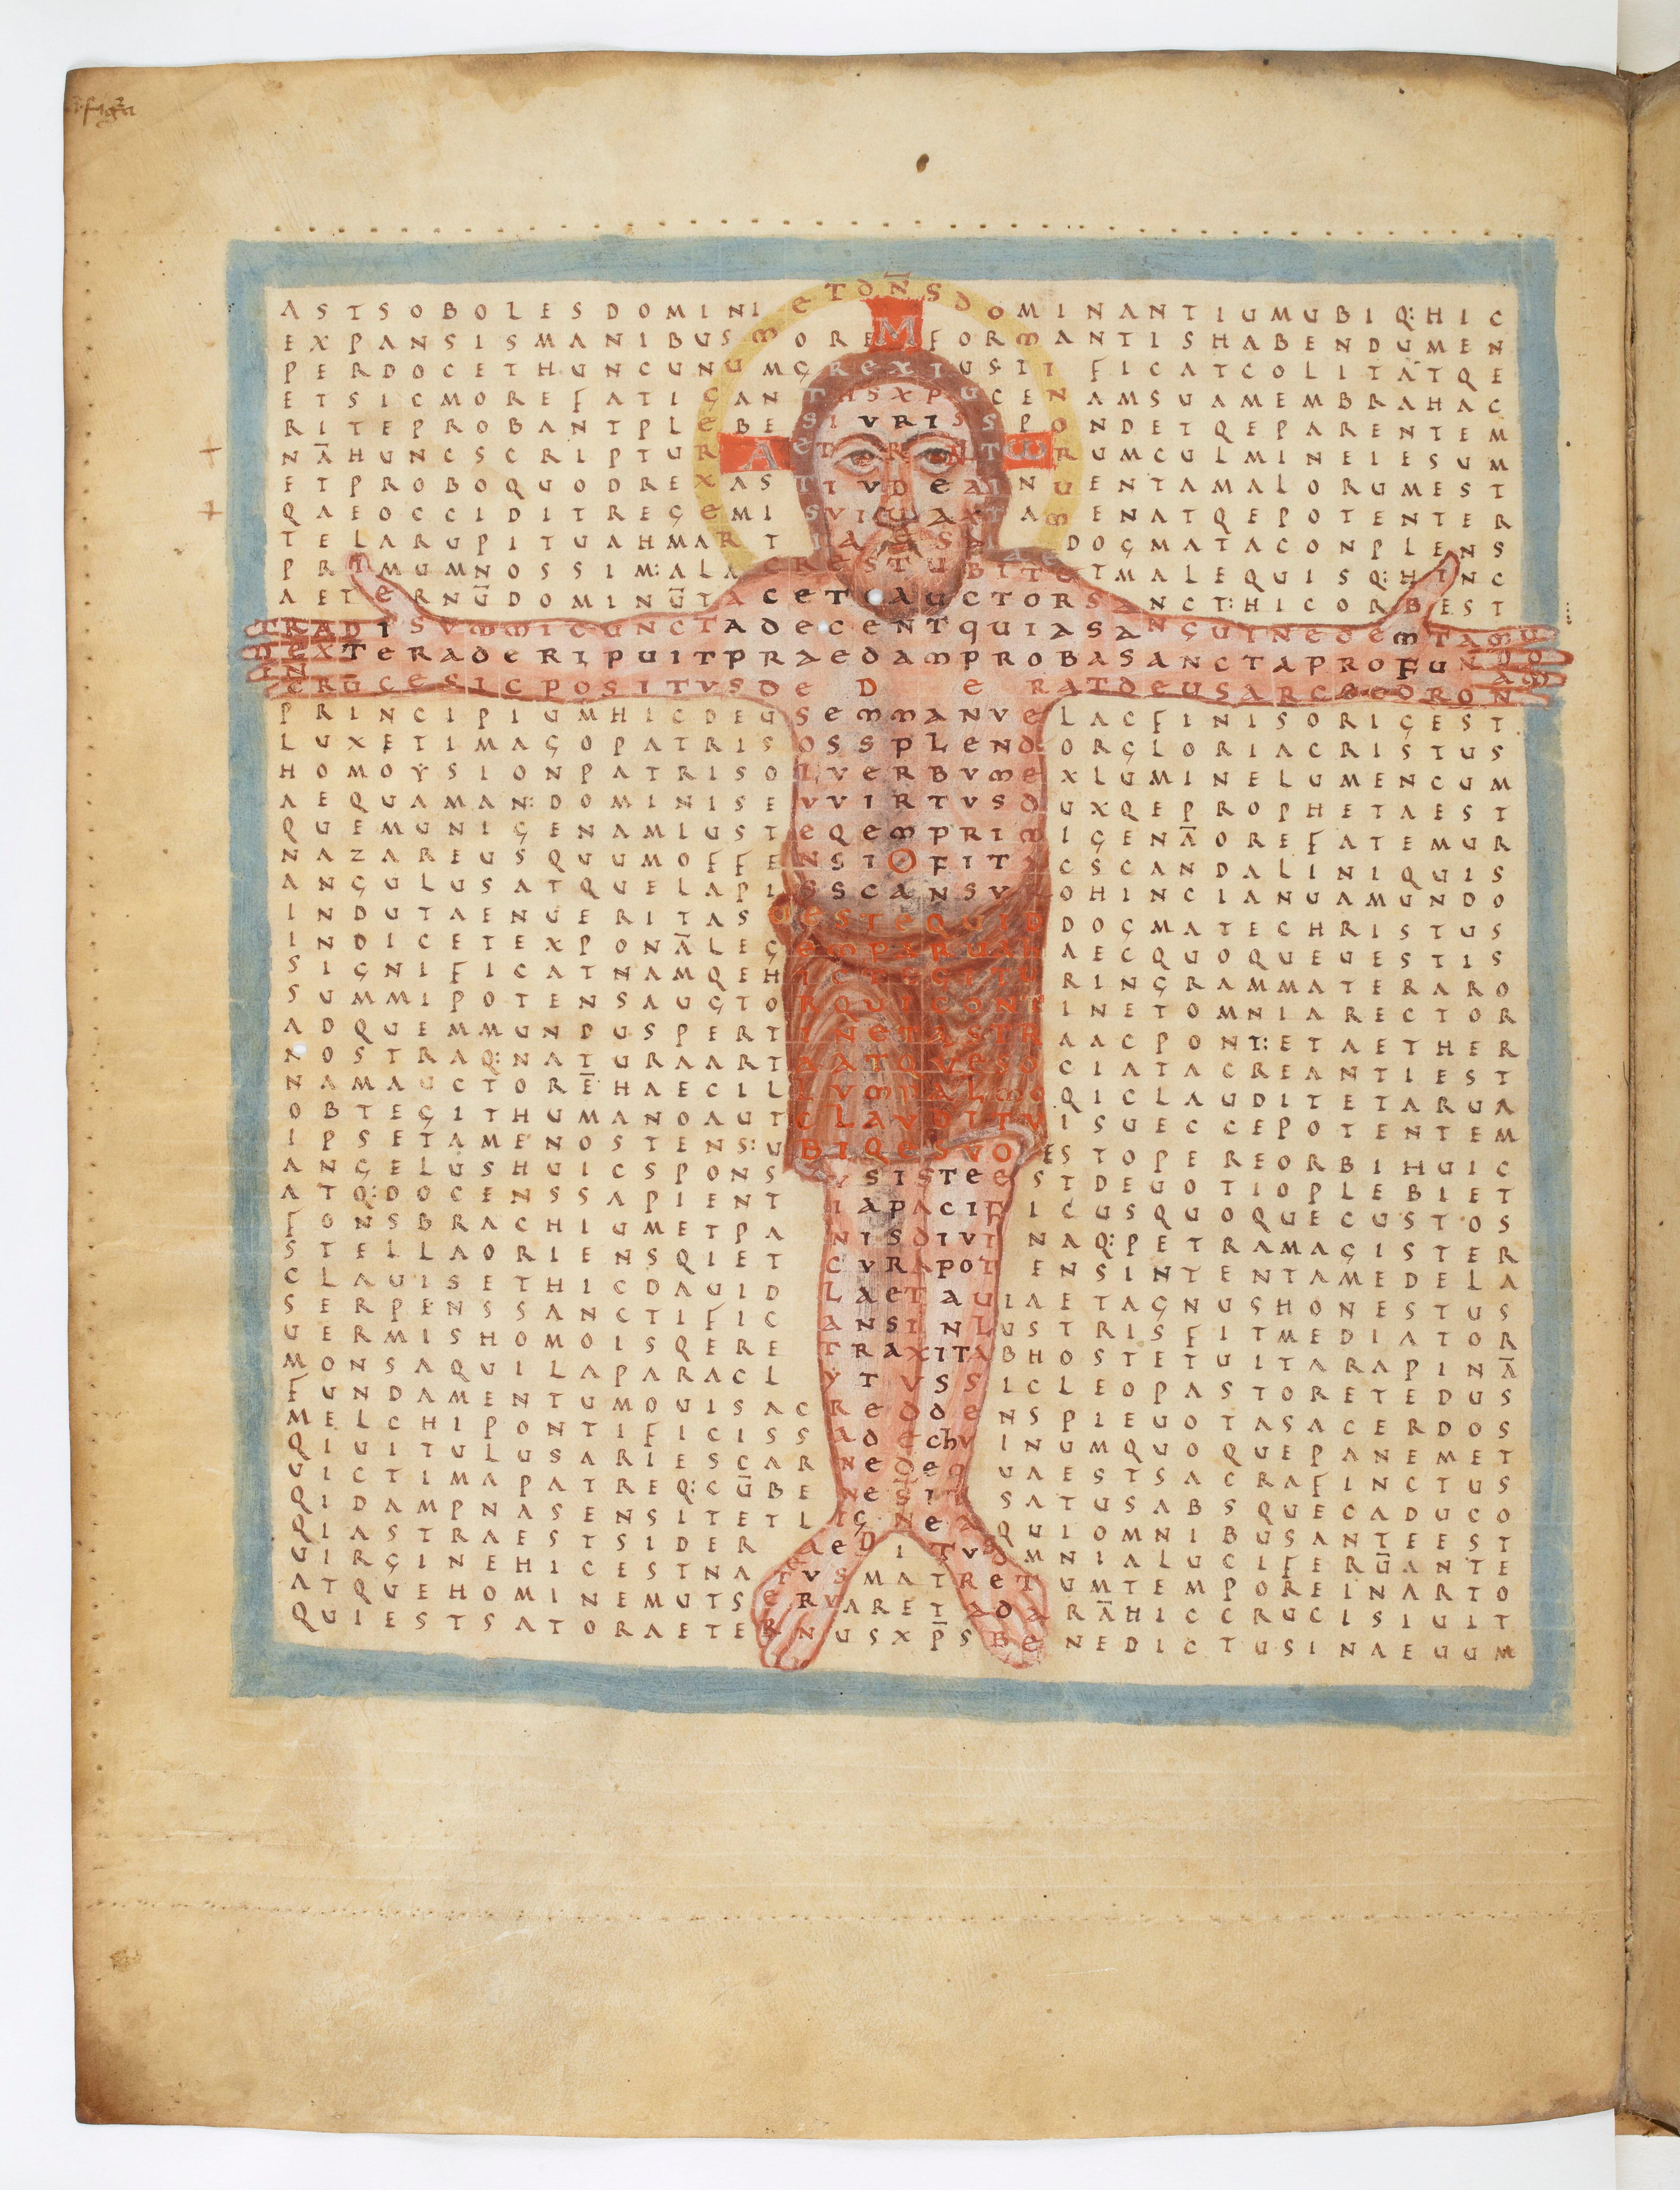 ASTSOBOLESDOMINIETDN̄SDOMINANTIUMUBIQ:HIC
EXPANSISMANIBUSMOREMFORMANTISHABENDUMEN
PERDOCETHUNCUNUMGREXIUSTIFICATCOLITĀTQE
ETSICMOREFATIGANTHSXPUCENAMSUAMEMBRAHAC
RITEPROBANTPLEBESIVRISSPONDETQEPARENTEM
NĀHUNCSCRIPTURAETRLTωRUMCULMINEIESUM
ETPROBOQUODREXASTIVDEAINUENTAMALORUMEST
QAEOCCIDITREGEMISVICUAXTAMENATQEPOTENTER
TELARUPITUAHMARTIASSAIAEDOGMATACONPLENS
PRIMUMNOSSIM:ALACRESTUBITETMALEQUISQ:HINC
AETERNŪDOMINŪTACETQAUCTORSANCT:HICORBEST
TRADISVMMICUNCTADECENTQUIASANGUINEDEMTAMU
DEXTERADERIPUITPRAEDAMPROBASANCTAPROFUNDO
INCRŪCESICPOSITVSDEDERATDEUSARCEEDRONAM
PRINCIPIUMHICDEUSEMMANVELACFINISORIGEST
LUXETIMAGOPATRISOSSPLENDORGLORIACRISTUS
HOMOYSIONPATRISOLVERBVMEXLUMINELUMENCUM
AEQUAMAN:DOMINISEVVIRTVSDUXQEPROPHETAEST
QUEMUNIGENAMIUSTEQEMPRIMIGENĀOREFATEMUR
NAZAREUSQUUMOFFENSIOFITACSCANDALINIQUIS
ANGULUSATQUELAPISSCANSVROHINCIANUAMUNDO
INDUTAENUERITASUESTEQUIDDOGMATECHRISTUS
INDICETETEXPONĀLEGEMPERUAHAECQUOQUEUESTIS
SIGNIFICATNAMQEHICTEGITURINGRAMMATERARO
SUMMIPOTENSAUCTORQUICONTINETOMNIARECTOR
ADQUEMMUNDUSPERTINETASTRAACPONT:ETAETHER
NOSTRAQ:NATURAARTRATQVESOCIATACREANTIEST
NAMAUCTORĒHAECILLVMPALMOQICLAUDITETARUA
OBTEGITHUMANOAUTCLAVDITVISUECCEPOTENTEM
IPSETAMENOSTENS:UBIQESVOESTOPEREORBIHUIC
ANGELUSHUICSPONSVSISTEESTDEUOTIOPLEBIET
ATQ:DOCENSSAPIENTIAPACIFICUSQUOQUECUSTOS
FONSBRACHIUMETPANISDIVINAQ:PETRAMAGISTER
STELLAORIENSQIETCVRAPOTENSINTENTAMEDELA
CLAUISETHICDAUIDLAETAUIAETAGNUSHONESTUS
SERPENSSANCTIFICANSINLUSTRISFITMEDIATOR
UERMISHOMOISQERETRAXITABHOSTETUITARAPINĀ
MONSAQUILAPARACLYTVSSICLEOPASTORETEDUS
FUNDAMENTUMOUISACREDDENSPIEUOTASACERDOS
MELCHIPONTIFICISSADECHVINUMQUOQUEPANEMET
QIUITULUSARIESCARNEDEQUAESTSACRAFINCTUS
UICTIMAPATREQ:CŪBENESITSATUSABSQUECADUCO
QIDAMPNASENSITETLIGNEAQUIOMNIBUSANTEEST
QIASTRAESTSIDERAEDITVSOMNIALUCIFERŪANTE
UIRGINEHICESTNATVSMATRETUMTEMPOREINARTO
ATQUEHOMINEMUTSERVARETADARĀHICCRUCISIUIT
QUIESTSATORAETERNUSXP̄SBENEDICTUSINAEUUM